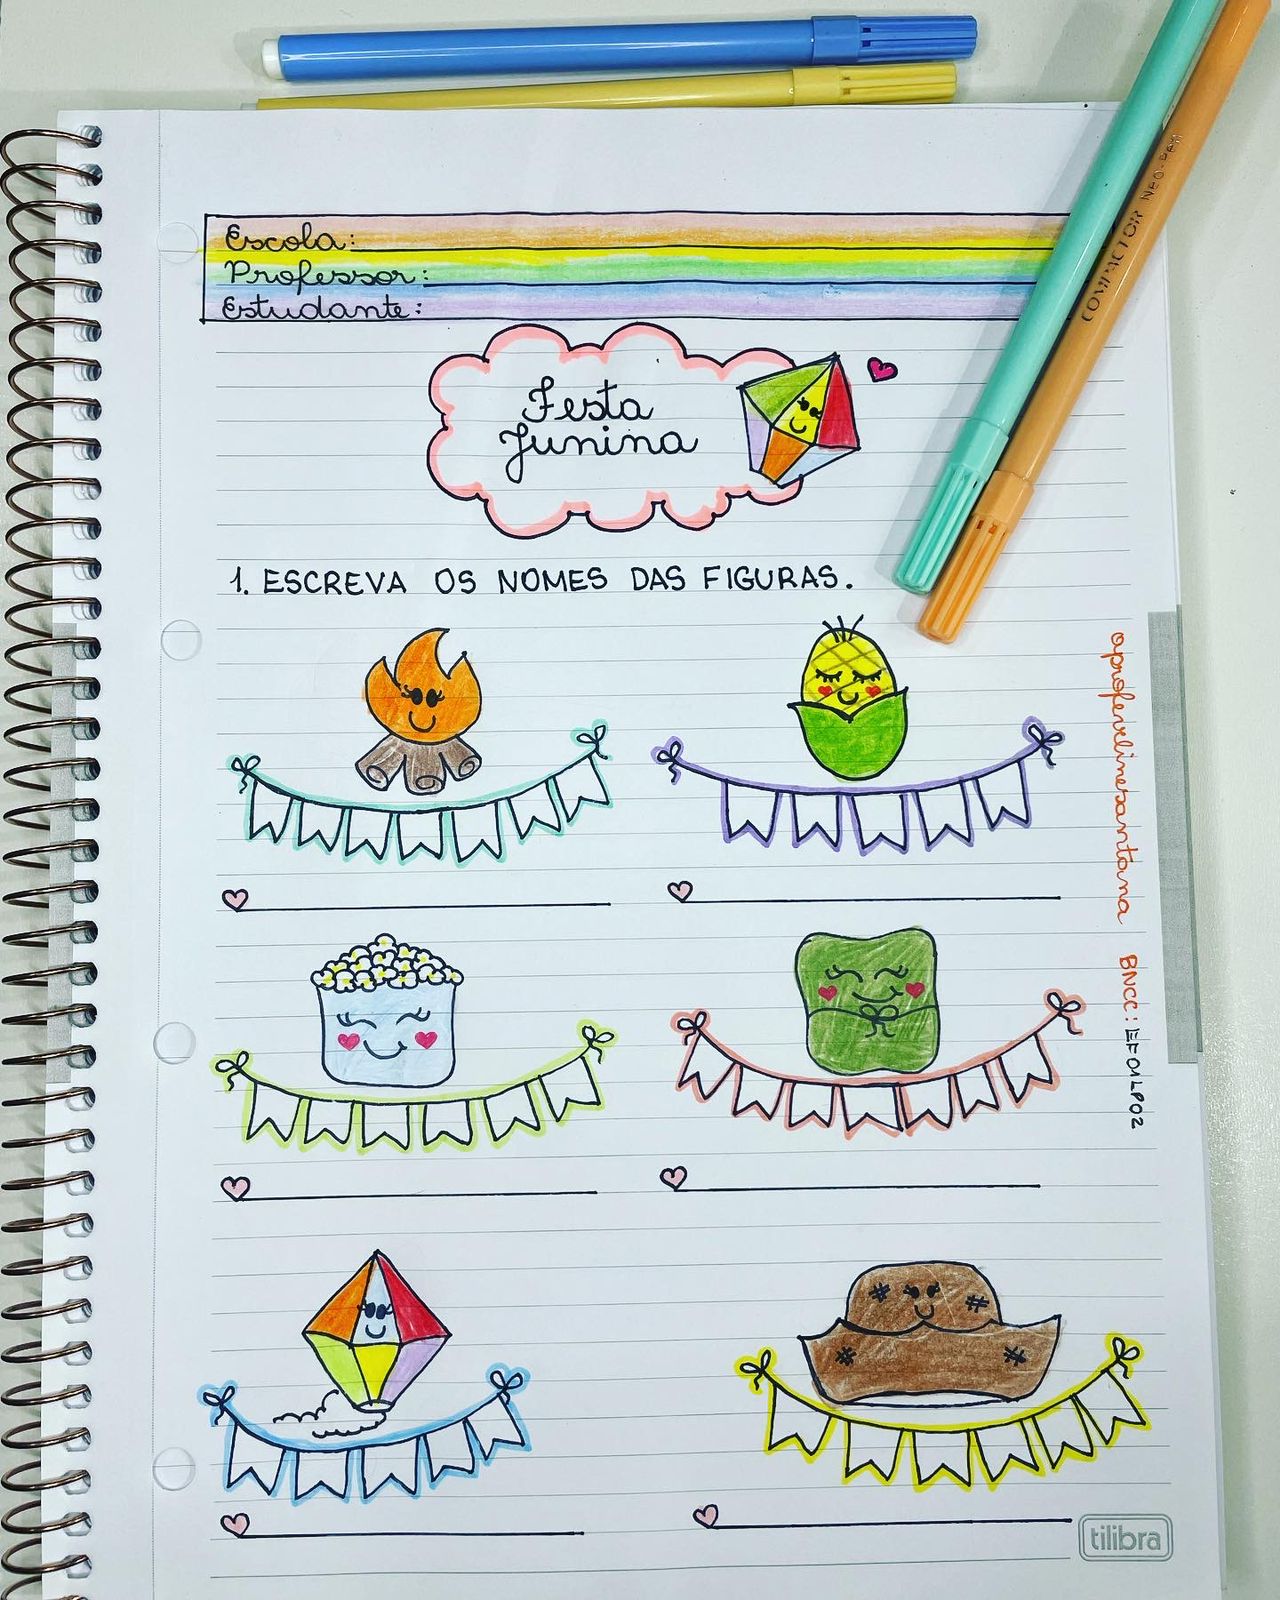 COMPACTOR NEO-PEN
Escola:
Professor:
Estudante:
Festa
Junina
1. ESCREVA OS NOMES DAS FIGURAS.
aprofevelinesantana BNCC: EF01LP02
tilibra